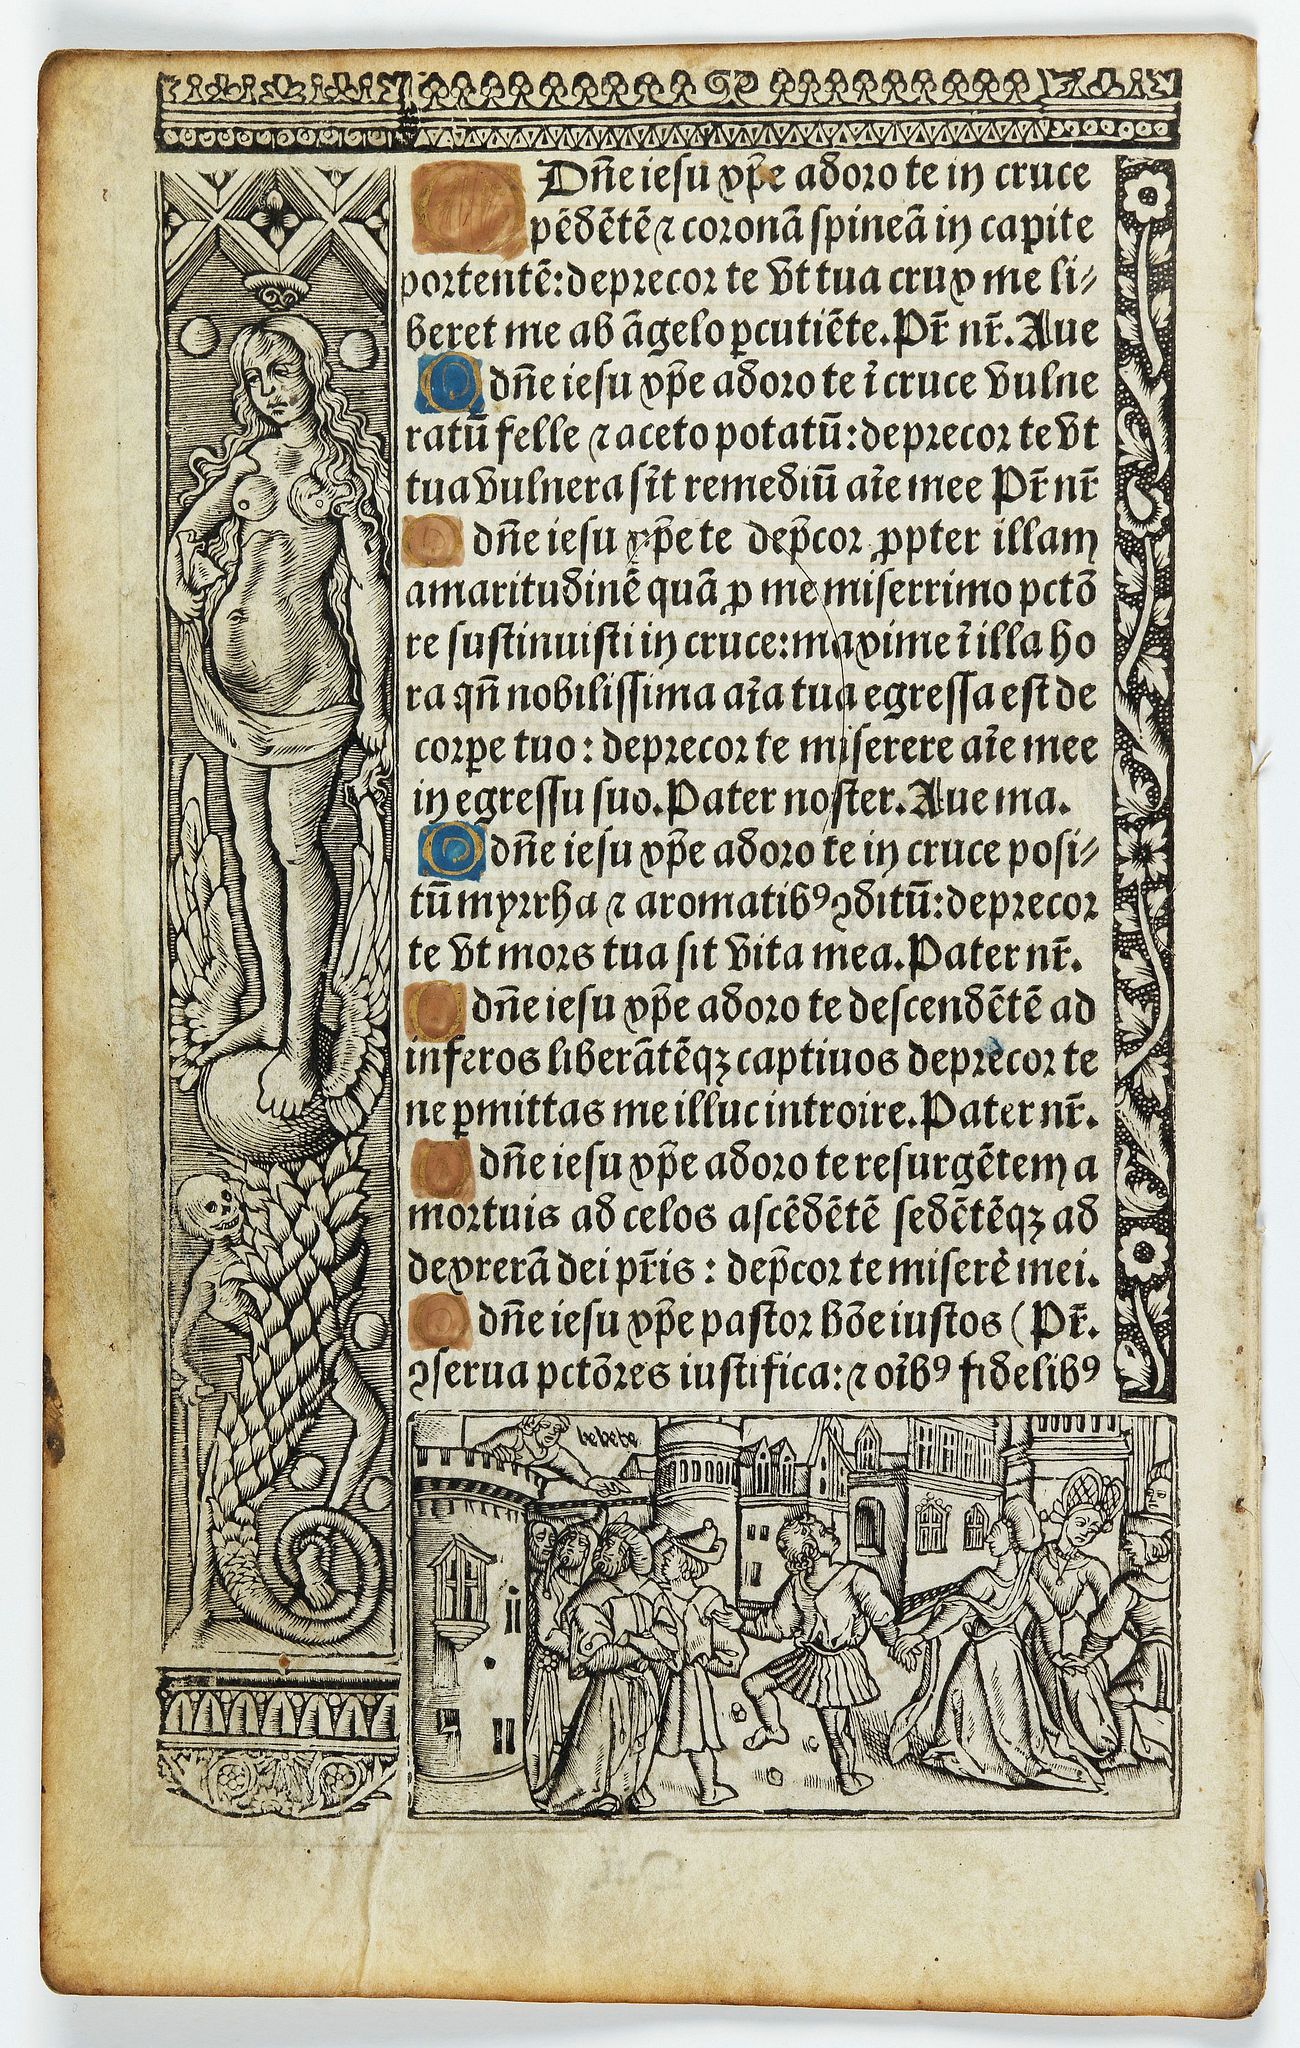 O Dñe iesu xp̄e adoro te in cruce
pēdētē ⁊ coronā spineā in capite
portentē: deprecor te vt tua crux me li⸗
beret me ab āgelo ꝑcutiēte. Pr̄ nr̄. Aue
O dñe iesu xp̄e adoro te ī cruce vulne
ratū felle ⁊ aceto potatū: deprecor te vt
tua vulnera sīt remediū aīe mee Pr̄ nr̄
O dñe iesu xp̄e te dep̄cor ꝓpter illam
amaritudinē quā ꝓ me miserrimo pctō
re sustinuisti in cruce: maxime ī illa ho
ra qn̄ nobilissima aīa tua egressa est de
corꝑe tuo: deprecor te miserere aīe mee
in egressu suo. Pater noster. Aue ma.
O dñe iesu xp̄e adoro te in cruce posi⸗
tū myrrha ⁊ aromatibꝰ ꝯditū: deprecor
te vt mors tua sit vita mea. Pater nr̄.
O dñe iesu xp̄e adoro te descendētē ad
inferos liberātēqꝫ captiuos deprecor te
ne ꝑmittas me illuc introire. Pater nr̄.
O dñe iesu xp̄e adoro te resurgētem a
mortuis ad celos ascēdētē sedētēqꝫ ad
dexrerā dei pr̄is: dep̄cor te miserē mei.
O dñe iesu xp̄e pastor bōe iustos (Pr̄.
ꝯserua pctōres iustifica: ⁊ oībꝰ fidelibꝰ
be be be